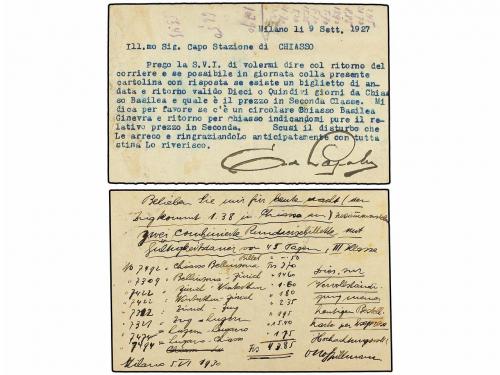 Milano li 9 Sett. 1927
Ill.mo Sig. Capo Stazione di CHIASSO
Prego la S.V.I. di volermi dire col ritorno del
corriere e se possibile in giornata colla presente
cartolina con risposta se esiste un biglietto di an-
data e ritorno valido Dieci o Quindivi giorni da Chias
so Basilea e quale è il prezzo in Seconda Classe. Mi
dica per favore se c'è un circolare Chiasso Basilea
Ginevra e ritorno per chiasso indicandomi pure il re-
lativo prezzo in Seconda. Scusi il disturbo che
Le arreco e ringraziandolo anticipatamente con tutta
stima Lo riverisco.
Belieben Sie mir für heute Nacht (der
Zug kommt 1.38 in Chiasso an)
zwei combinierte Rundreisebillette mit
Gültigkeitsdauer von 45 Tagen, III Klasse
No 7492 - Chiasso Bellinzona Frs 3.70
" 7309 - Bellinzona - Zürich
" 7422 - Zürich - Winterthur " 1.80
" 7422 - Winterthur - Zürich " 1.80
Zürich - Zug " 2.35
Zug - Luzern " 1.95
Luzern - Lugano " 15.40
" 7494 - Lugano - Chiasso " 1.75
Frs 43.85
Milano 5/VI 1930